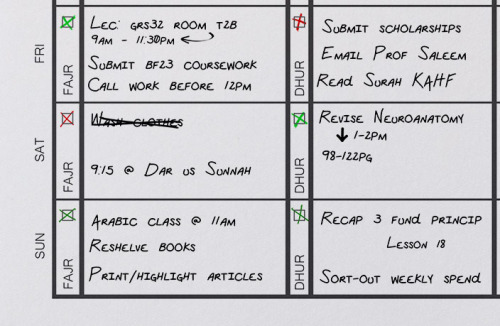 FRI
FAJR
LEC: GRS32 ROOM T2B
9AM - 11:30PM
SUBMIT BF23 COURSEWORK
CALL WORK BEFORE 12PM
DHUR
SUBMIT SCHOLARSHIPS
EMAIL PROF SALEEM
READ SURAH KAHF
SAT
FAJR
WASH CLOTHES
9:15 @ DAR US SUNNAH
DHUR
REVISE NEUROANATOMY
1-2PM
98-122PG
SUN
FAJR
ARABIC CLASS @ 11AM
RESHELVE BOOKS
PRINT/HIGHLIGHT ARTICLES
DHUR
RECAP 3 FUND PRINCIP
LESSON 18
SORT-OUT WEEKLY SPEND